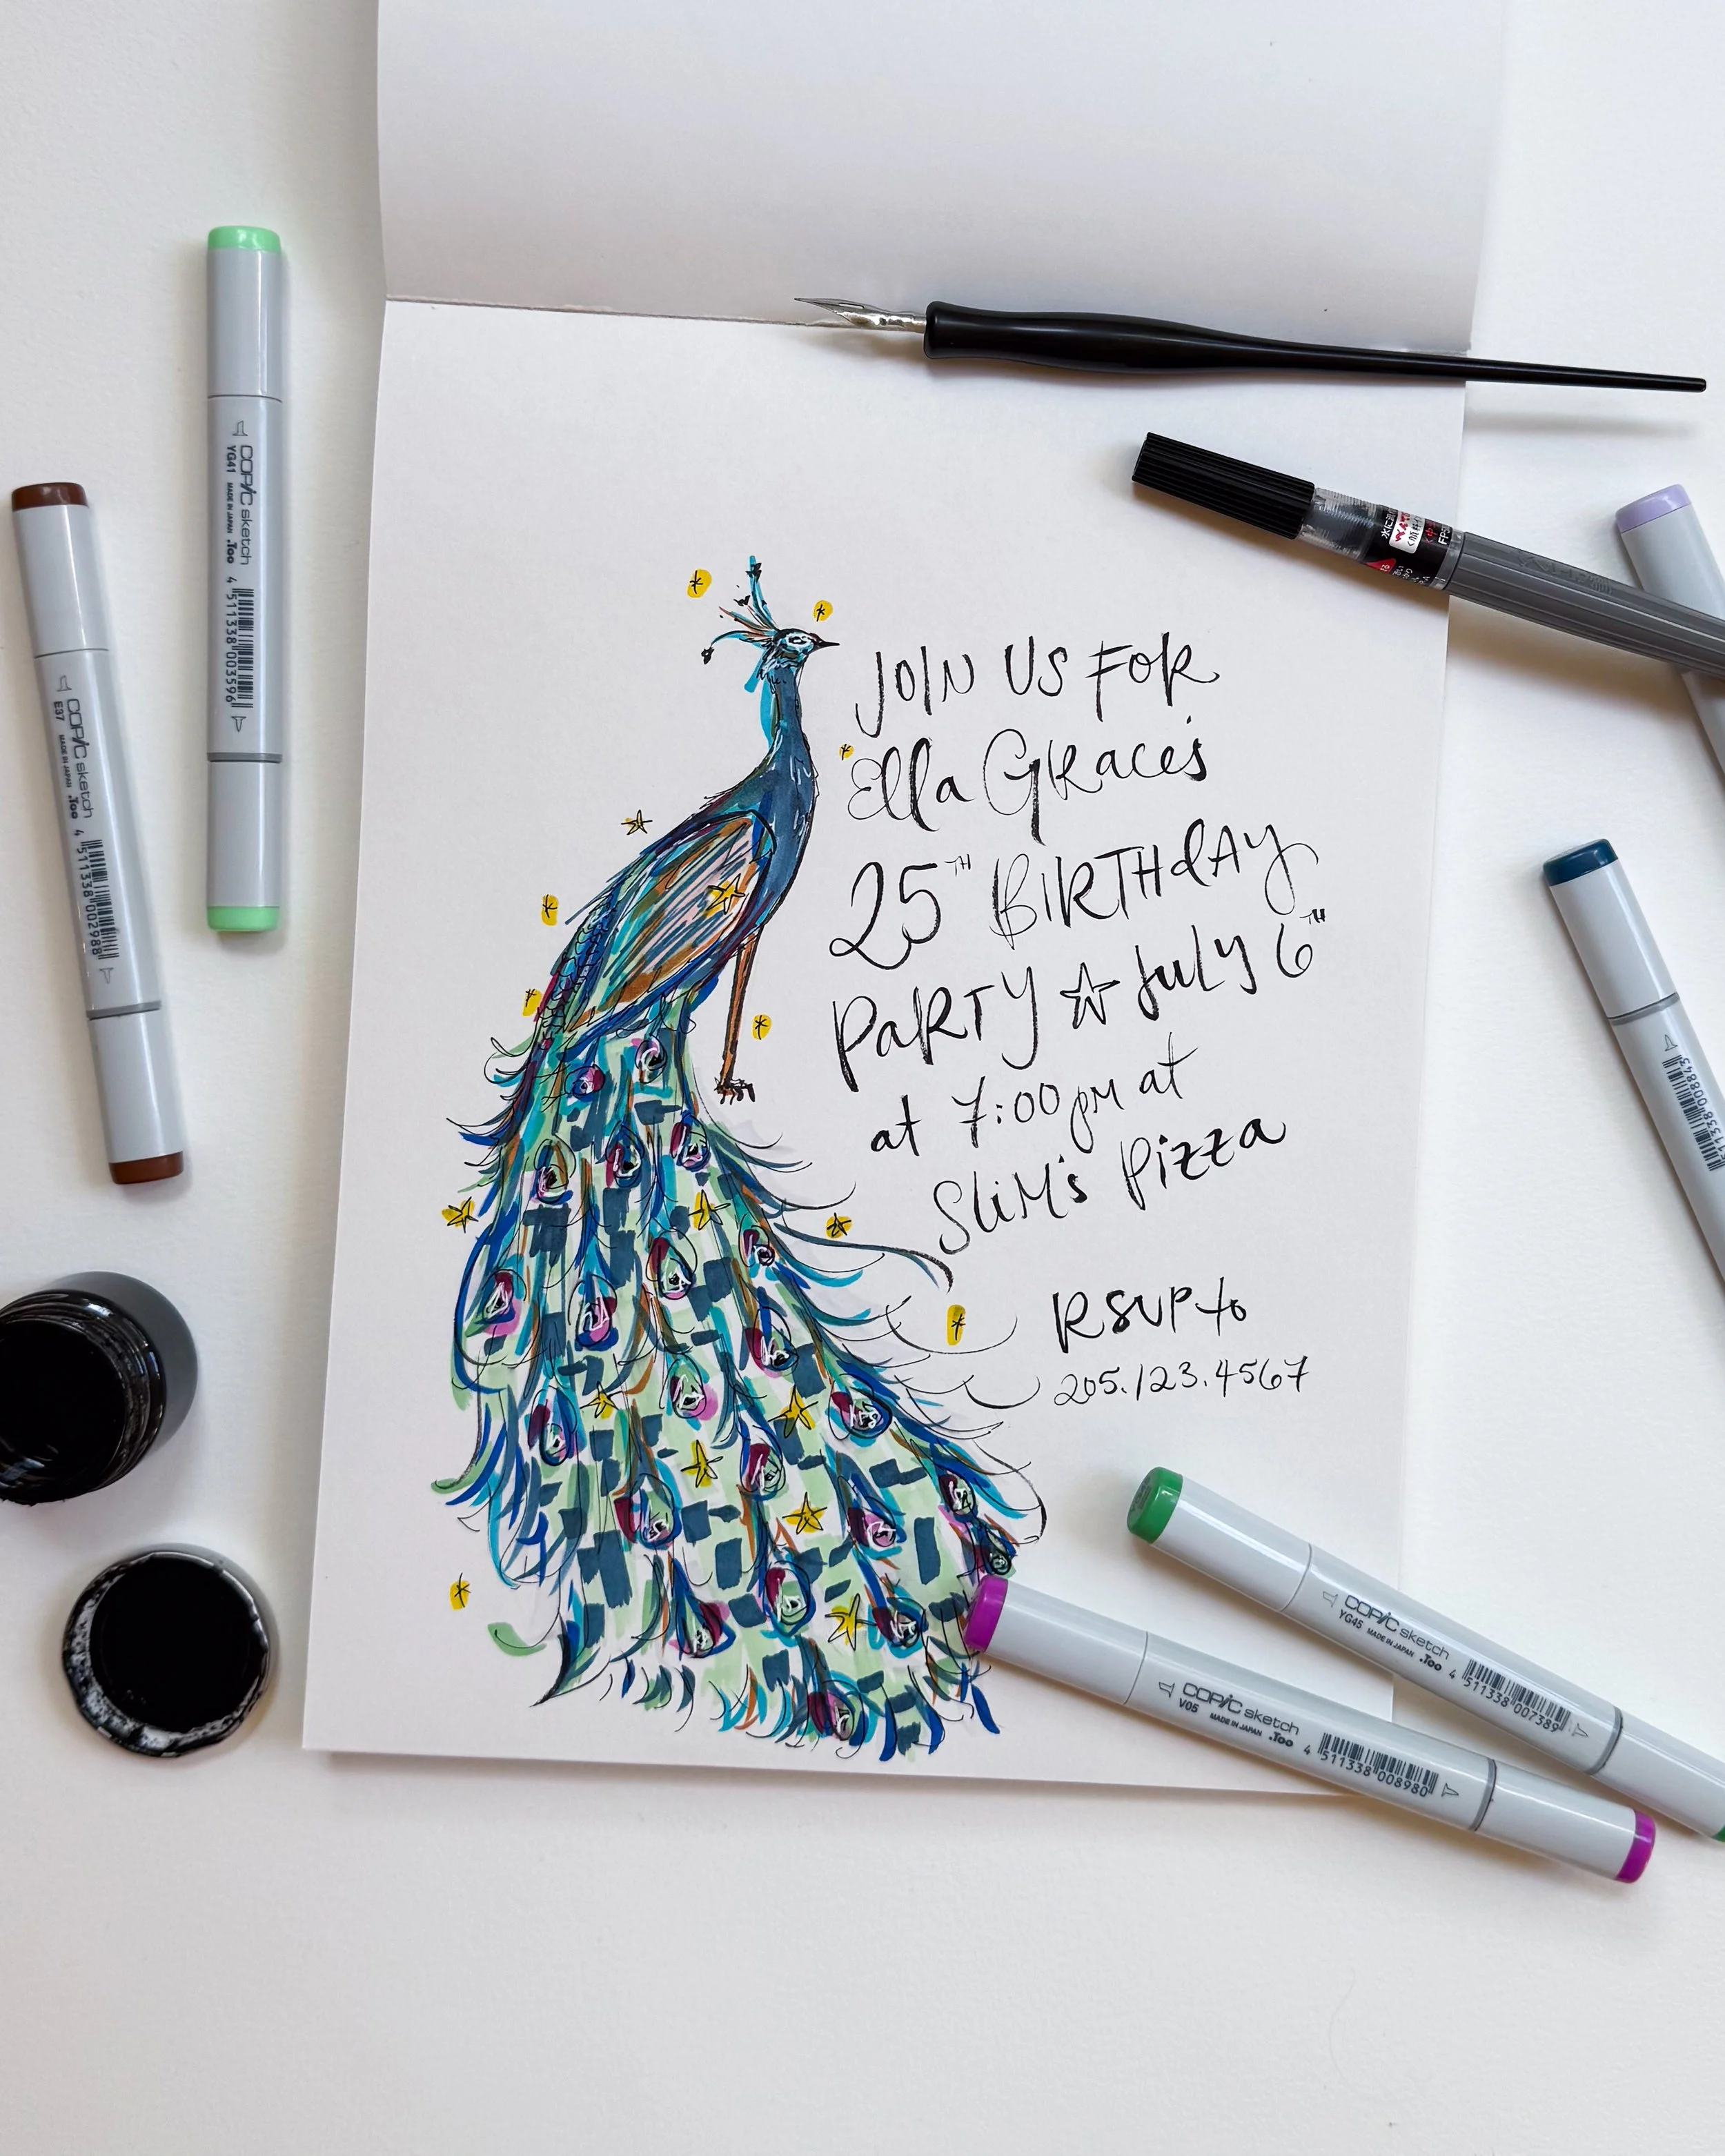 JOIN US FOR
Ella GRace's
25TH BIRTHdAY
PaRTY ☆ July 6TH
at 7:00 pm at
SliM's Pizza
RSVP to
205.123.4567
COPIC sketch
YG41 MADE IN JAPAN .Too 4 511338 003596
COPIC sketch
E37 MADE IN JAPAN .Too 4 511338 002988
COPIC sketch
YG45 MADE IN JAPAN .Too 4 511338 007389
COPIC sketch
V05 MADE IN JAPAN .Too 4 511338 008980
511338 008843